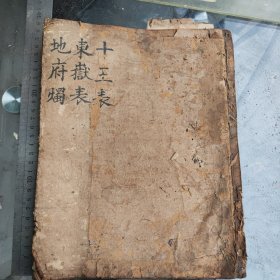 十王表
東嶽表
地府燭